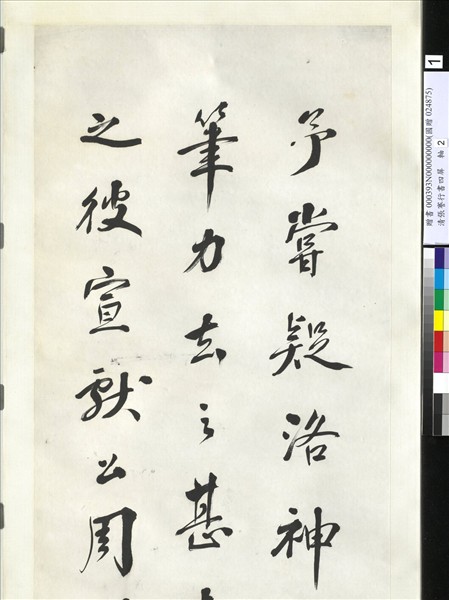 予嘗疑洛神
筆力去之甚
之彼宣獻公周
1
贈書 000393N000000000(國贈 024875)
清張騫行書四屏 軸 2